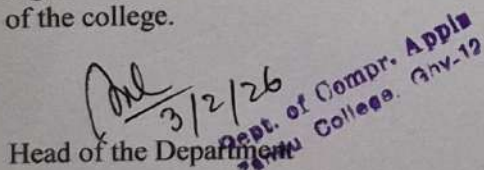 of the college.
3/2/26
Dept. of Compr. Appln
College. Ghy-12
Head of the Department